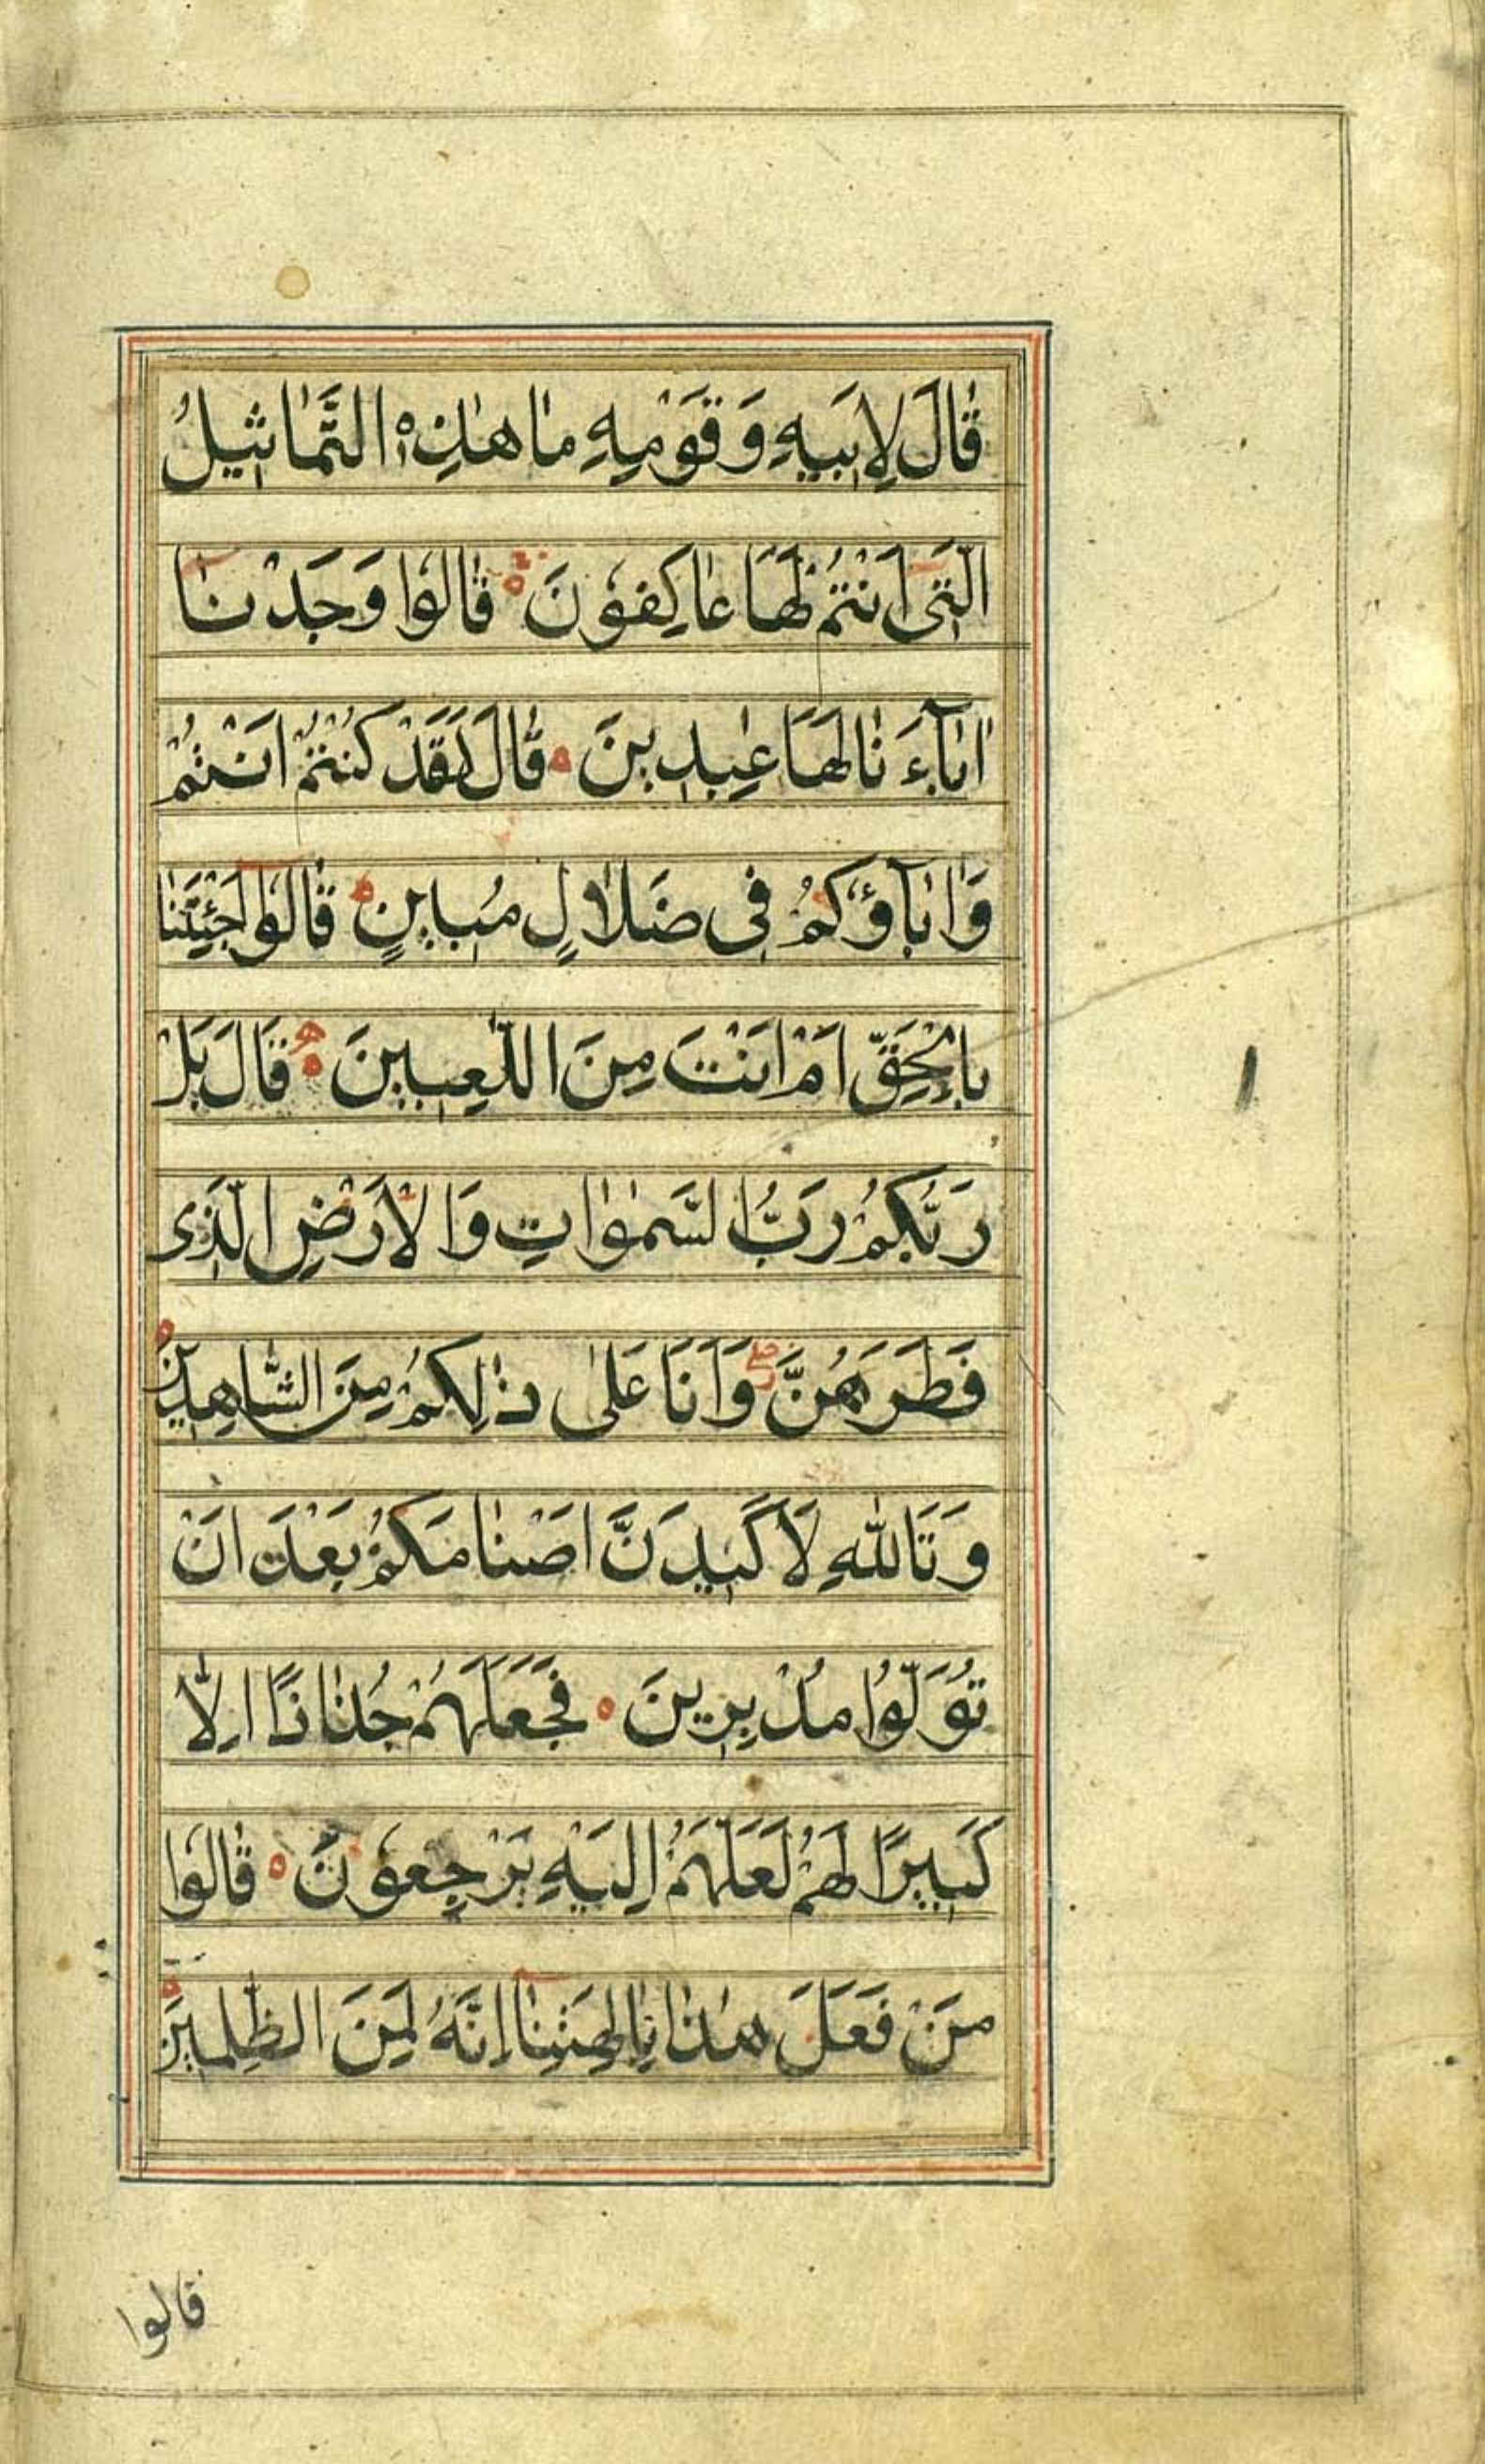 قٰالَ لِاَبیٖهِ وَ قَوْمِهِ مٰا هٰذِهِ التَّمٰاثیٖلُ
الَّتیٖ اَنْتُمْ لَهٰا عٰاكِفُونَ قٰالُوا وَجَدْنٰا
اٰبٰآءَنٰا لَهٰا عٰبِدیٖنَ قٰالَ لَقَدْ كُنْتُمْ اَنْتُمْ
وَاٰبٰآؤُكُمْ فیٖ ضَلَالٍ مُبیٖنٍ قٰالُوٓا اَجِئْتَنٰا
بِالْحَقِّ اَمْ اَنْتَ مِنَ اللّٰعِبیٖنَ قَالَ بَلْ
رَبُّكُمْ رَبُّ السَّمٰوٰاتِ وَالْاَرْضِ الَّذیٖ
فَطَرَهُنَّ وَاَنَا عَلٰی ذٰلِكُمْ مِنَ الشَّاهِدیٖنَ
وَتَاللّٰهِ لَاَكیٖدَنَّ اَصْنٰامَكُمْ بَعْدَ اَنْ
تُوَلُّوا مُدْبِریٖنَ فَجَعَلَهُمْ جُذٰاذًا اِلّٰا
كَبیٖرًا لَهُمْ لَعَلَّهُمْ اِلَیْهِ یَرْجِعُونَ قٰالُوا
مَنْ فَعَلَ هٰذٰا بِاٰلِهَتِنٰآ اِنَّهُ لَمِنَ الظّٰلِمیٖنَ
قالوا